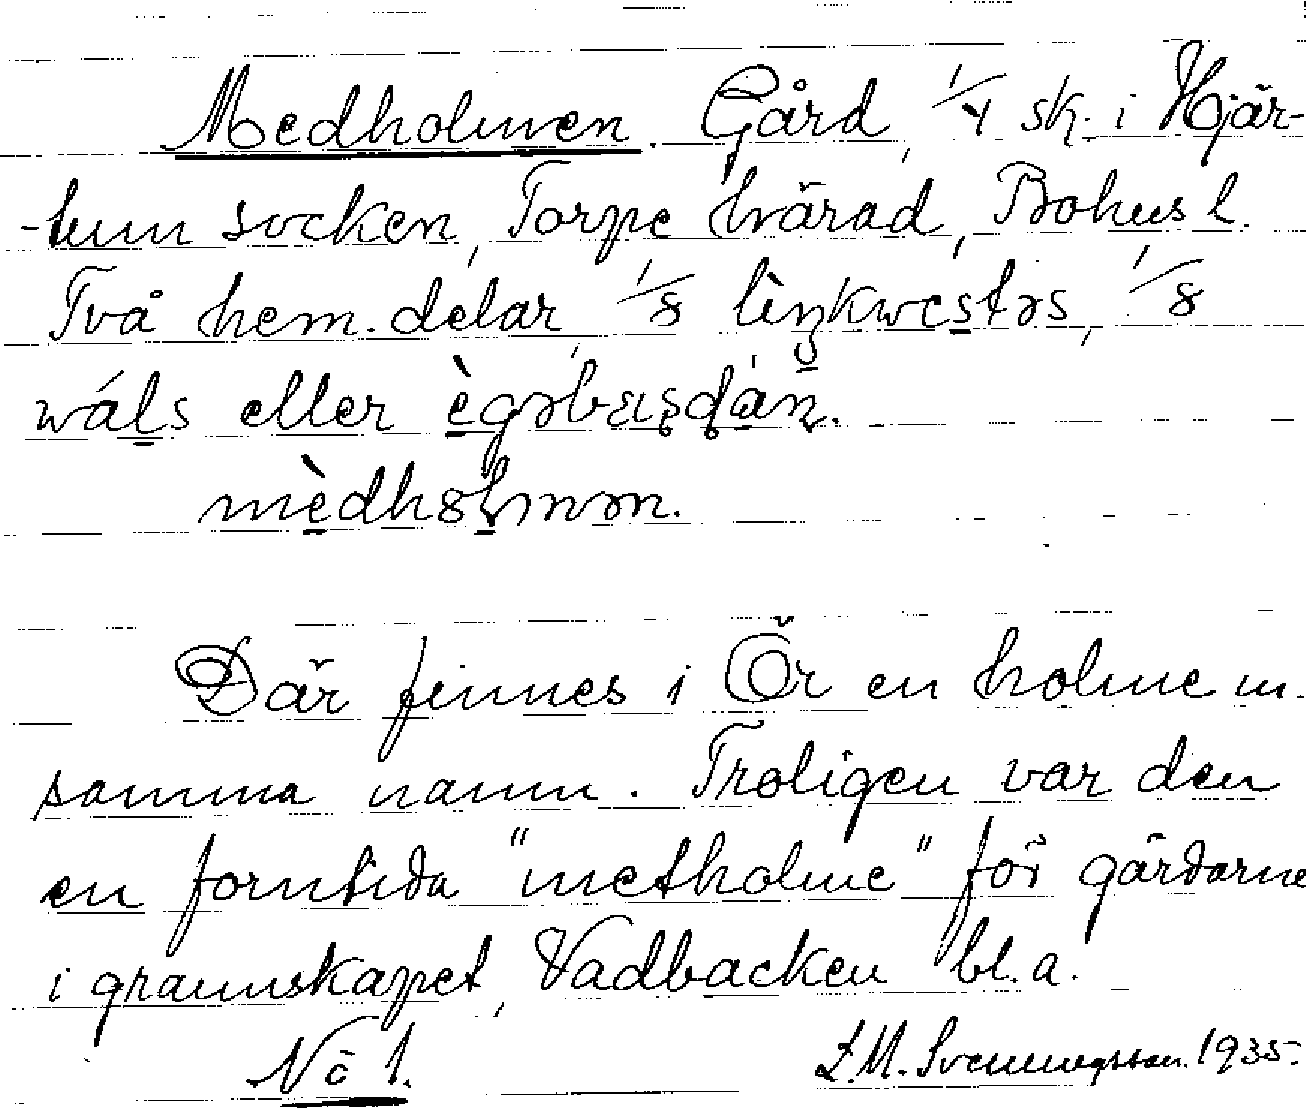 Medholmen. Gård, 1/4 sk. i Hjär-
-tum socken, Torpe härad, Bohus l.
Två hem.delar, 1/8 1/8
eller
Där finnes i Ör en holme m.
samma namn. Troligen var den
en forntida "metholme" för gårdarne
i grannskapet, Vadbacken bl.a.
No 1. L.M. Svenungsson. 1935.